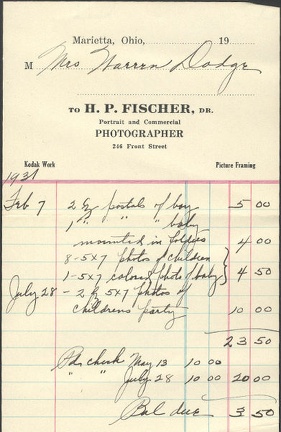 Marietta, Ohio, ........................ 19......
M Mrs Warren Dodge
TO H. P. FISCHER, DR.
Portrait and Commercial
PHOTOGRAPHER
246 Front Street
Kodak Work Picture Framing
1931
Feb 7 2 postals of boy 5 00
1 " " " baby
mounted in folders 4 00
8-5x7 photos of children
1-5x7 colored photo of baby } 4 50
July 28 - 2 5x7 photos of
childrens party 10 00
23 50
Pd. check May 13 10 00
" " July 28 10 00 20 00
Bal due 3 50